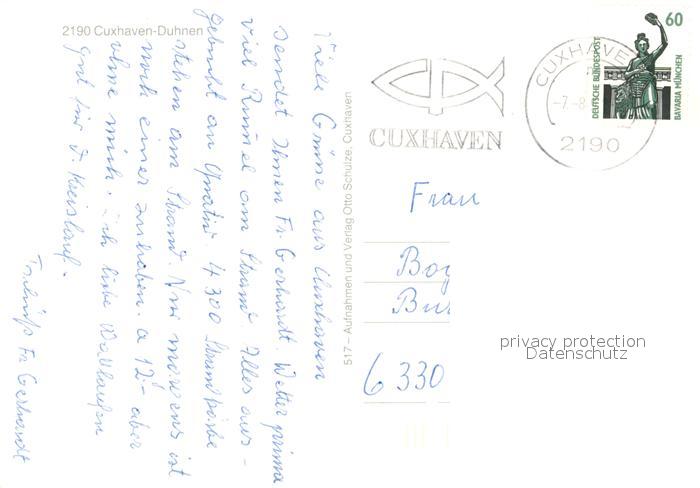 2190 Cuxhaven-Duhnen
Viele Grüße aus Cuxhaven
sendet Ihnen Fr. Gerhardt. Wetter prima
viel Rummel am Strand. Alles aus-
gebucht an Quatir. 4300 Strandkörbe
stehen am Strand. Nur morgens ist
noch einer zuhaben. a 12.- aber
ohne mich. Ich liebe Wattlaufen
gut für d. Kreislauf.
Fr. Gerhardt
517 – Aufnahmen und Verlag Otto Schulze, Cuxhaven
CUXHAVEN
CUXHAVEN
-7.-8.
2190
60
DEUTSCHE BUNDESPOST
BAVARIA MÜNCHEN
Frau
6330
privacy protection
Datenschutz